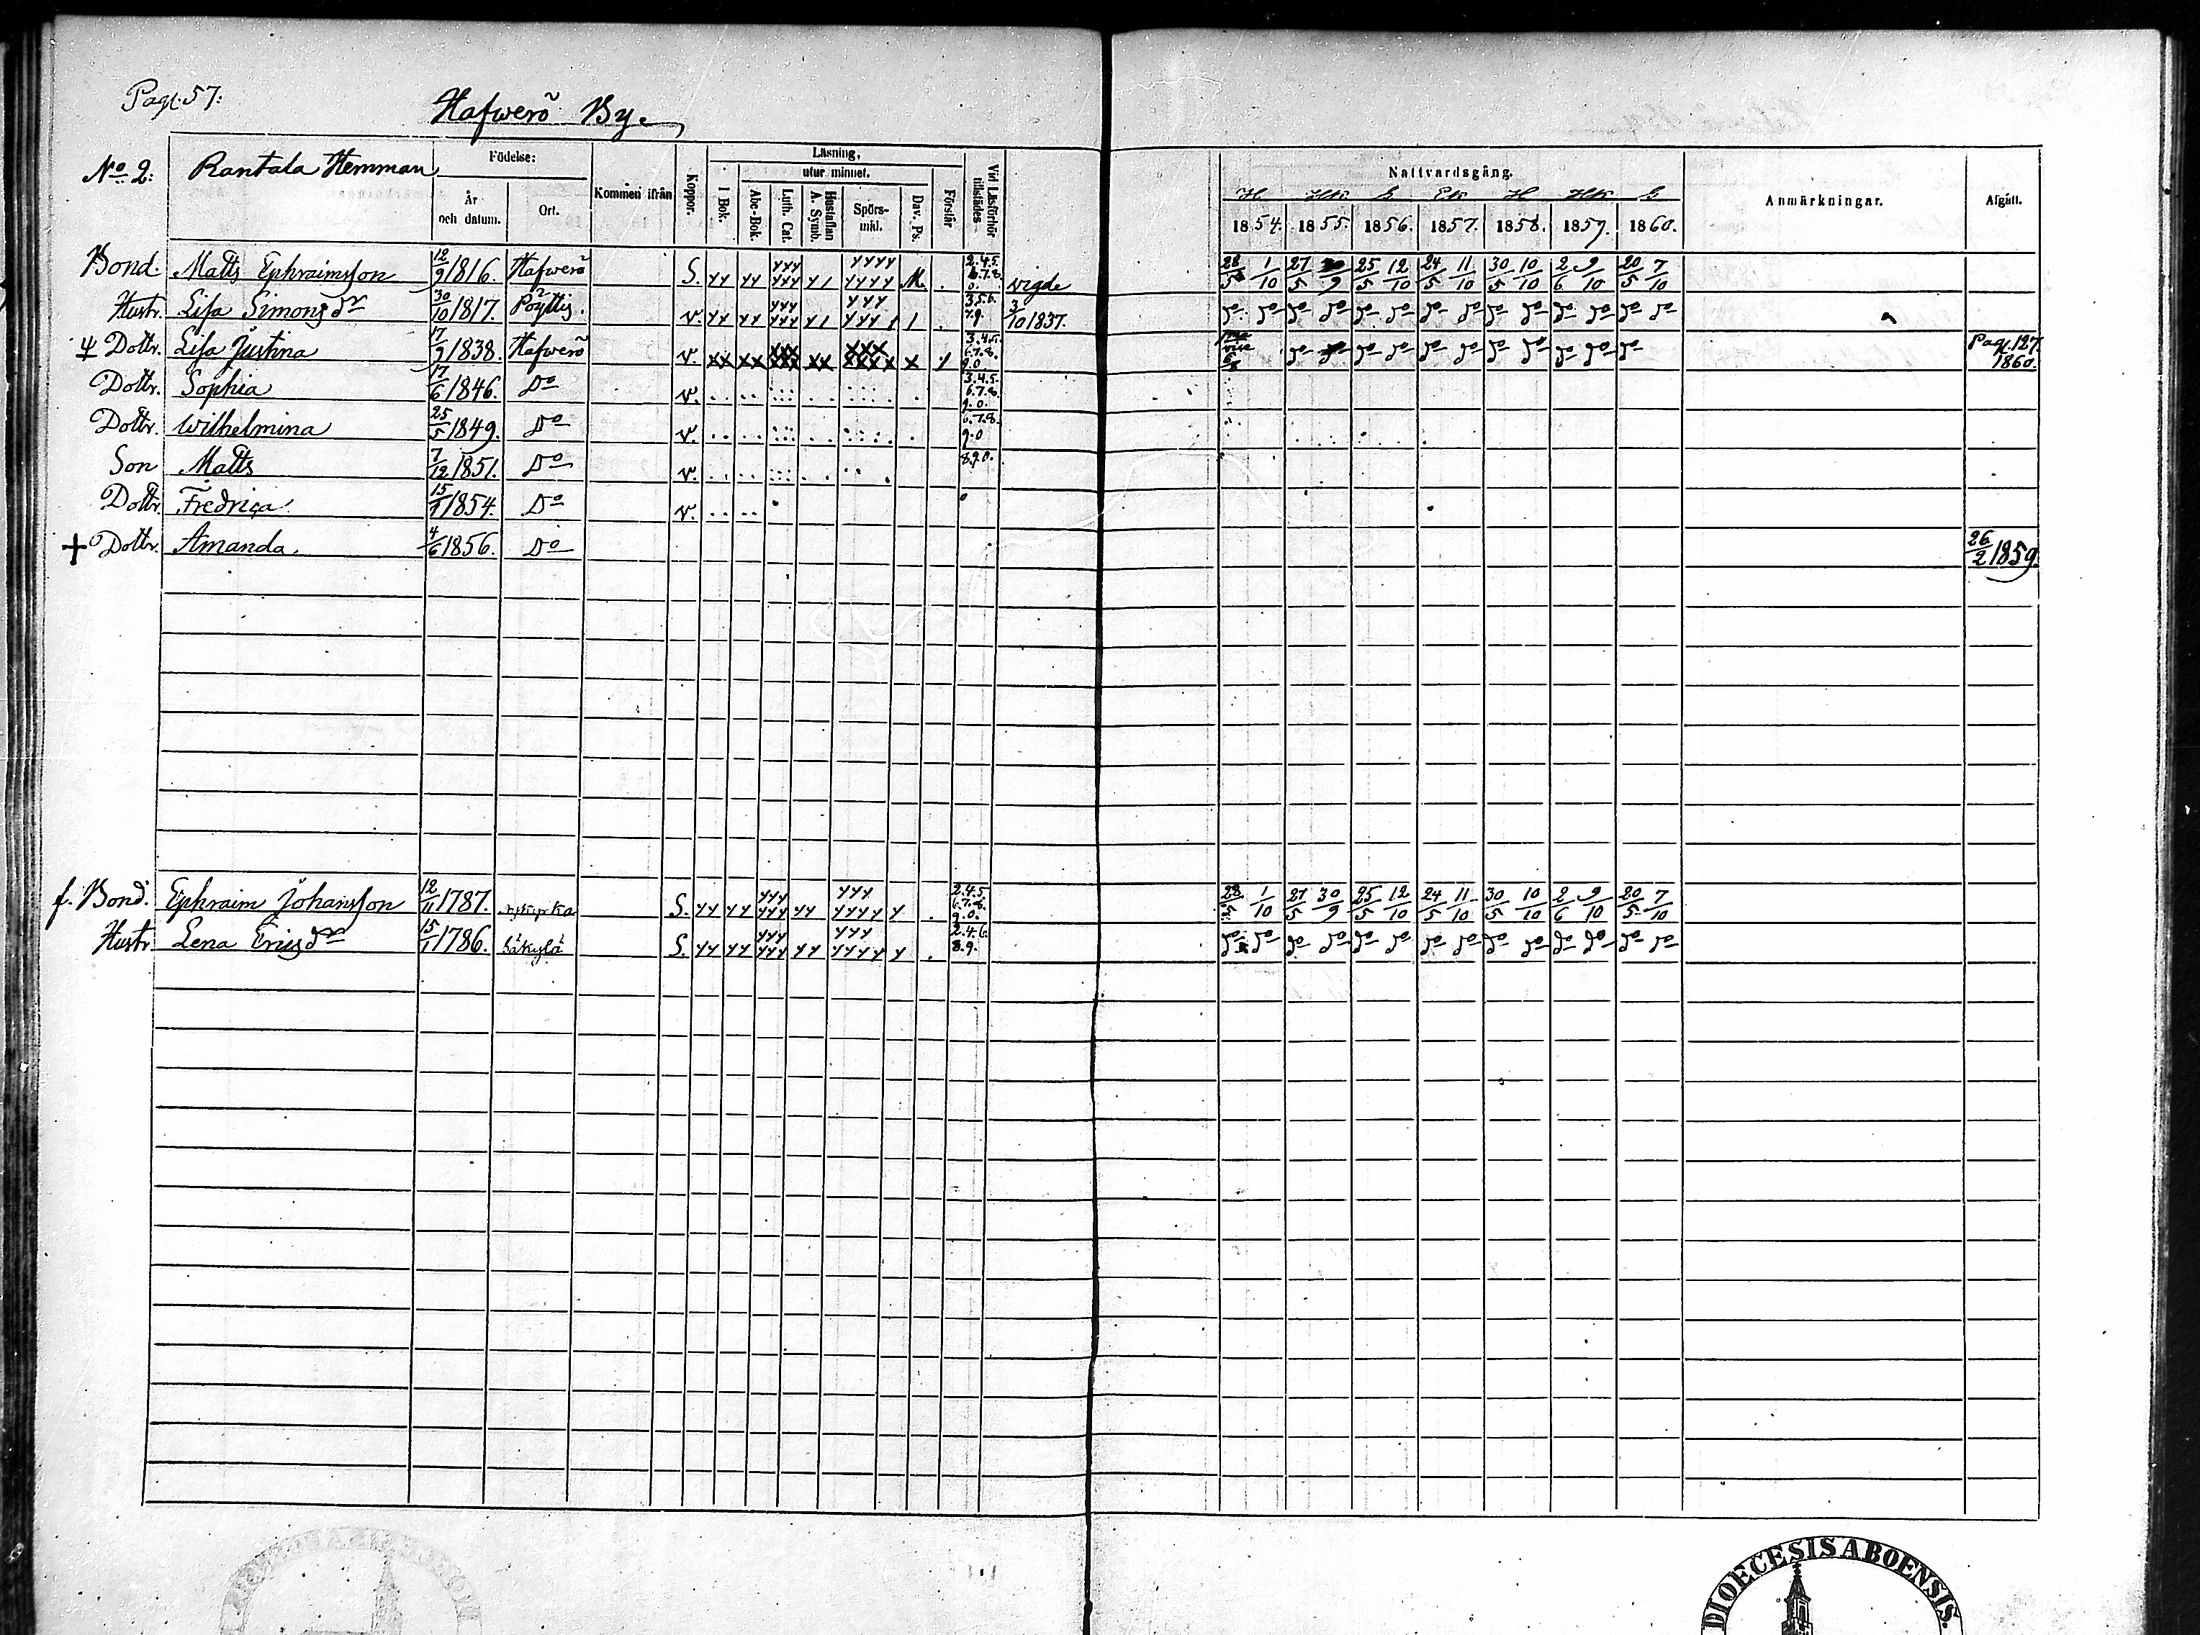 Pag. 57:
Hafwerö By.
No. 2: Rantala Hemman
Födelse:
År och datum.
Ort.
Kommen ifrån
Koppor.
Läsning,
utur minnet.
I Bok.
Abc-Bok.
Luth. Cat.
Hustaflan A. Symb.
Spörs-mål.
Dav. Ps.
Förstår
Vid Läsförhör tillstädes
Nattvardsgång.
1854. 1855. 1856. 1857. 1858. 1859. 1860.
Anmärkningar.
Afgått.
Bond. Matts Ephraimsson 12/9 1816. Hafwerö S. yy yy yyy yyy y1 yyyy yyyy M. . 2.4.5. 6.7.8. 0. vigde 28/5 1/10 27/5 30/9 25/5 12/10 24/5 11/10 30/5 10/10 2/6 9/10 20/5 7/10
Hustr. Lisa Simonsdr 30/10 1817. Pöyttis. v. yy yy yyy yyy y1 yyy yyy1 1 . 3.5.6. 7.9. 3/10 1837. do do do do do do do do do do do do do do
Dottr. Lisa Justina 17/9 1838. Hafwerö v. xx xx xxx xxx xx xxx xxxx x y 3.4.5. 6.7.8. 9.0. do do do do do do do do do do do Pag. 127. 1860.
Dottr. Sophia 17/6 1846. Do v. 3.4.5. 6.7.8. 9.0.
Dottr. Wilhelmina 25/5 1849. Do v. 6.7.8. 9.0
Son Matts 7/12 1851. Do v. 8.9.0.
Dottr. Fredrica 15/1 1854. Do v. 0
+ Dottr. Amanda. 4/6 1856. Do 26/2 1859.
f. Bond. Ephraim Johansson 12/11 1787. S. yy yy yyy yyy yy yyy yyyy y . 2.4.5 6.7.8. 9.0. 28/5 1/10 27/5 30/9 25/5 12/10 24/5 11/10 30/5 10/10 2/6 9/10 20/5 7/10
Hustr. Lena Ericsdr 15/1 1786. Säkylä S. yy yy yyy yyy yy yyy yyyy y . 2.4.6. 8.9. do do do do do do do do do do do do do do
DIOECESIS ABOENSIS.